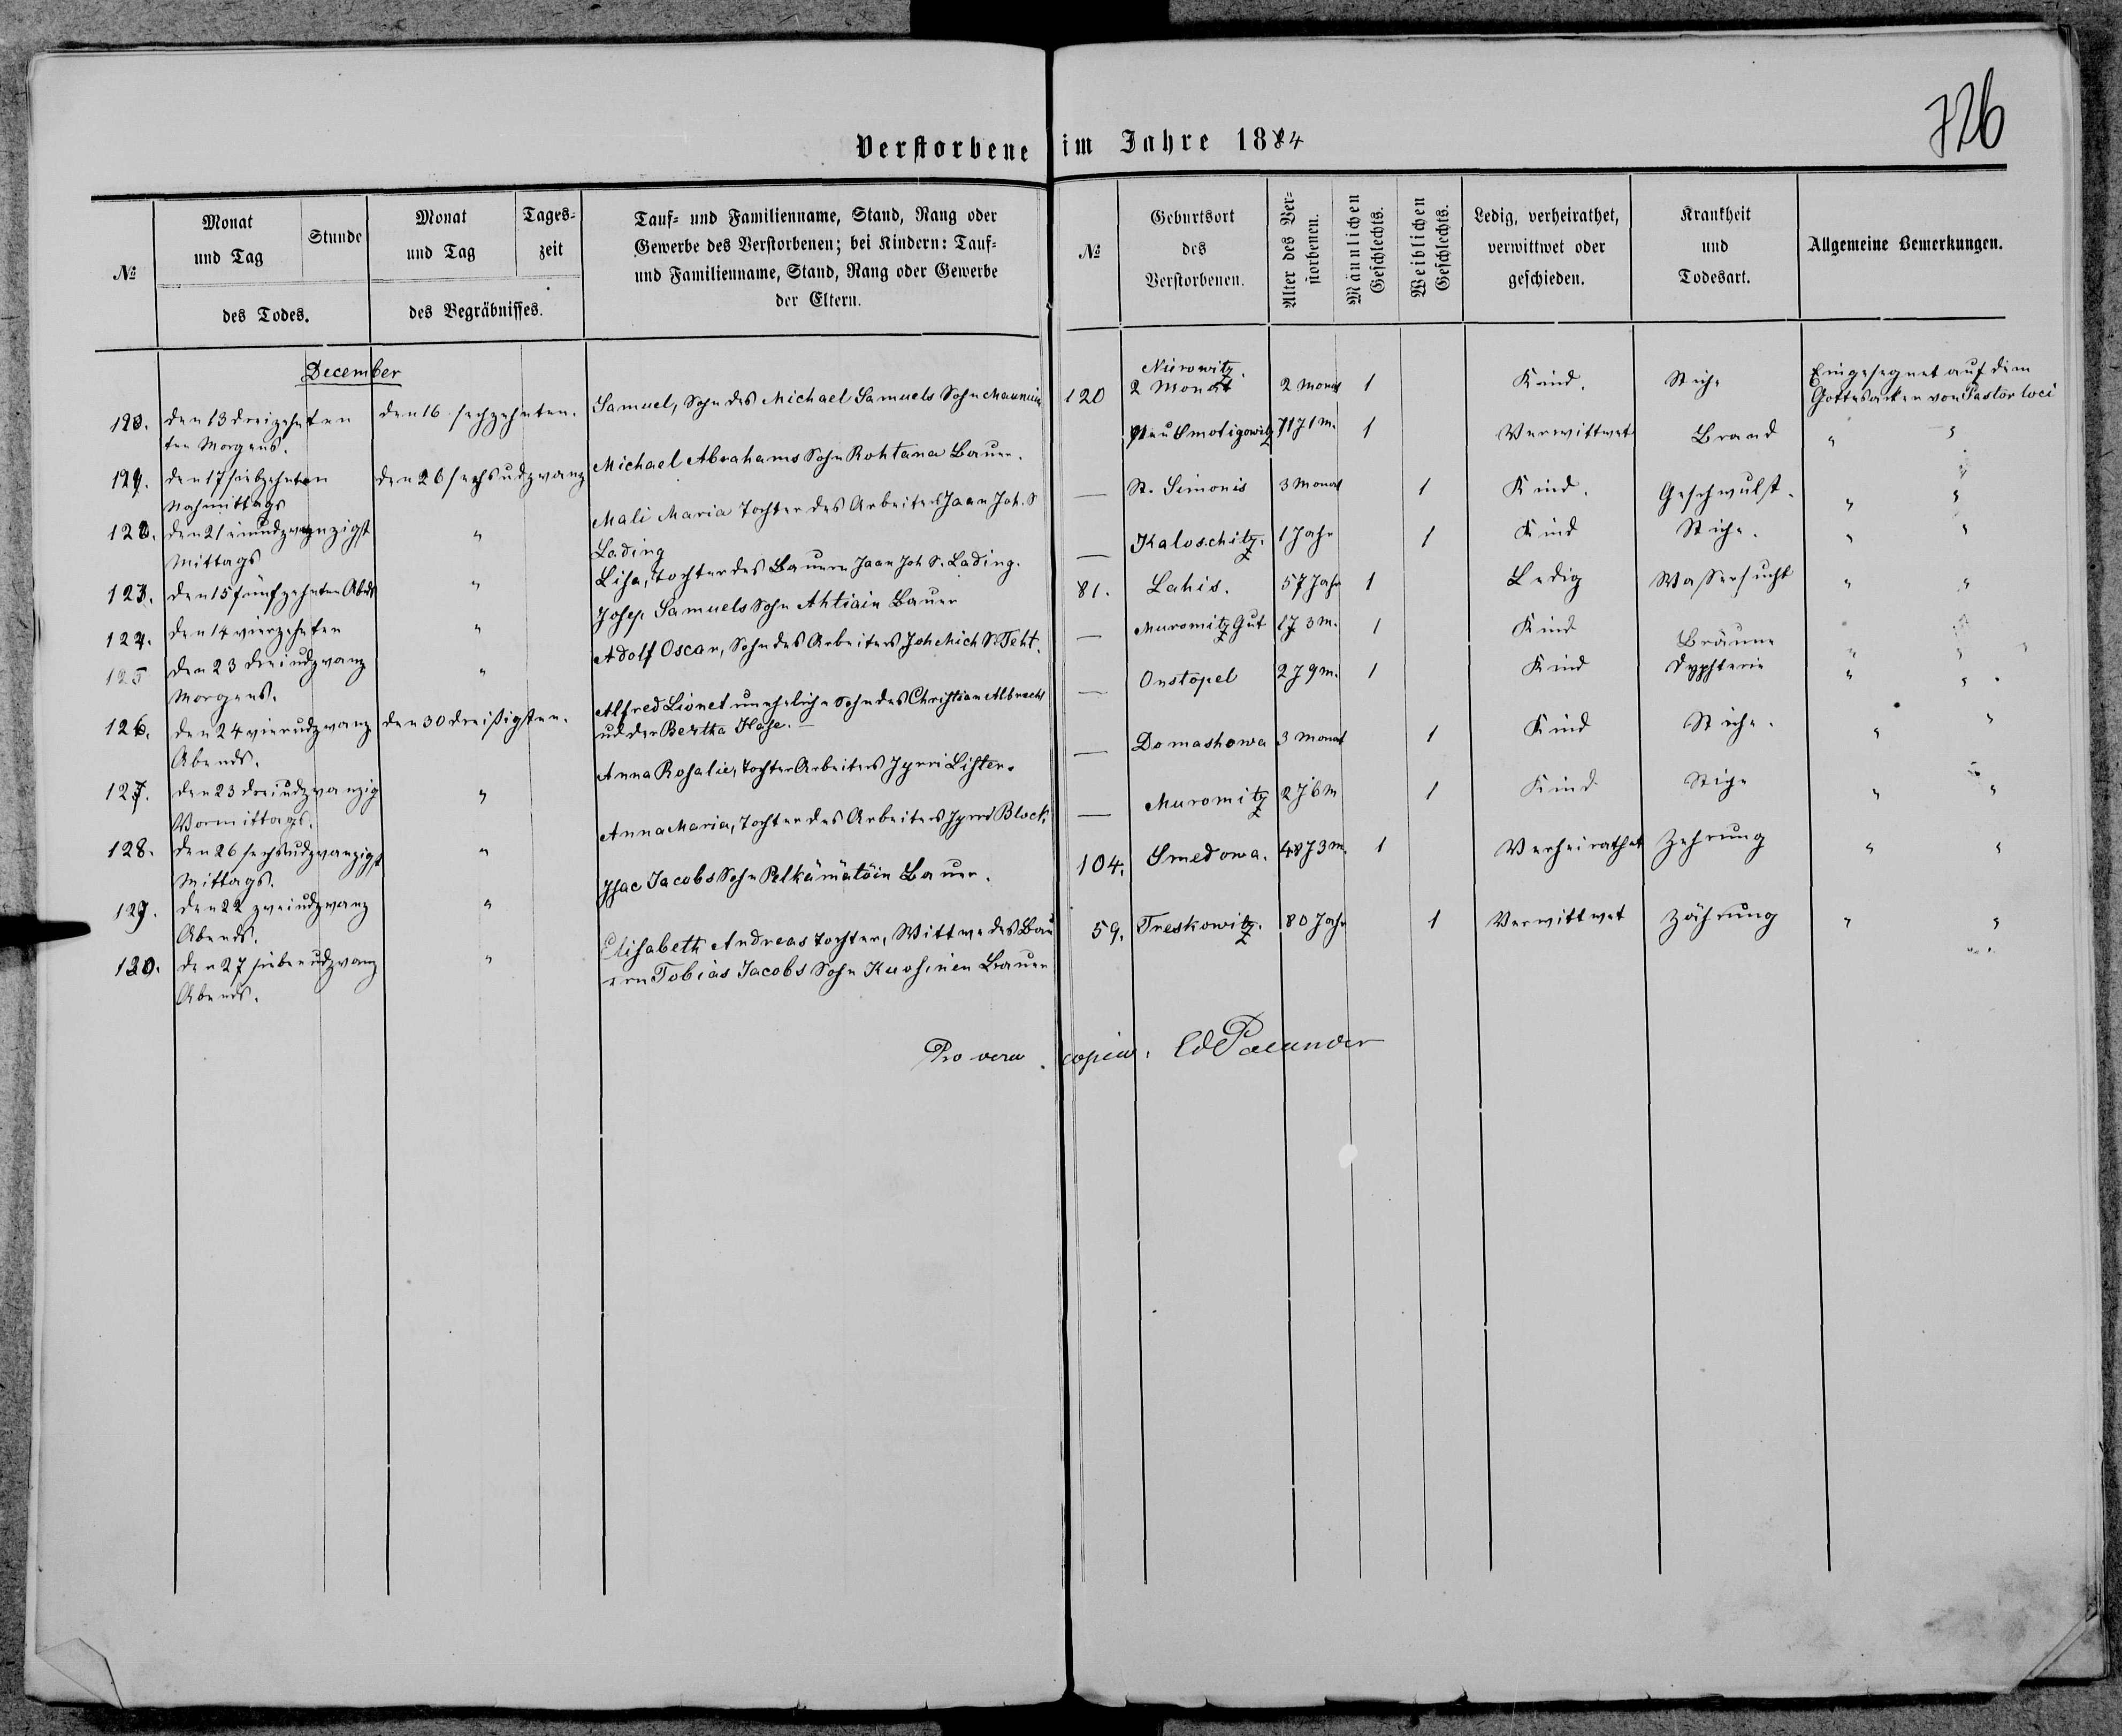 726
Verstorbene im Jahre 1884
№
Monat und Tag
Stunde
des Todes.
Monat und Tag
Tages-zeit
des Begräbnisses.
Tauf- und Familienname, Stand, Rang oder
Gewerbe des Verstorbenen; bei Kindern: Tauf-
und Familienname, Stand, Rang oder Gewerbe
der Eltern.
№
Geburtsort
des
Verstorbenen.
Alter des Ver-
storbenen.
Männlichen
Geschlechts.
Weiblichen
Geschlechts.
Ledig, verheirathet,
verwittwet oder
geschieden.
Krankheit
und
Todesart.
Allgemeine Bemerkungen.
December
den 13 dreizehnten
ten Morgens.
den 16 sechzehnten.
Samuel, Sohn des Michael Samuels Sohn
120
2 Monat
2 Monat 1
Kind.
Stiche
Eingesegnet auf dem
Gottesacker von Pastor loci
den 17 siebzehnten
Nachmittags
den 26 sechsudzwanz
Michael Abrahams Sohn Rohtana Bauer.
71 J 1 m. 1
Verwittwet
Brand
" "
den 21 einudzwanzigst
Mittags
"
Mali Maria Tochter des Arbeiters Jaan Joh. S
Lading
— St. Simonis 3 Monat 1
Kind.
Geschwulst.
" "
123. den 15 fünfzehnten Abds
"
Lisa, Tochter des Bauern Jaan Joh S. Lading.
— Kaloschitz. 1 Jahr 1
Kind
Stiche.
" "
124. den 14 vierzehnten
"
Josep Samuels Sohn Ahtiain Bauer
81. Lahis. 57 Jahr 1
Ledig
Wassersucht
" "
125 den 23 dreiudzwanz
Morgens.
"
Adolf Oscar, Sohn des Arbeiters Joh Mich S. Teht.
— Muromitz Gut 1 J. 3 m. 1
Kind
Bräune
" "
126. den 24 vierudzwanz
Abends.
den 30 dreißigsten.
Alfred Lionet uneheliche Sohn des Christian Albrecht
ud der Bertha Hase. —
— Onstopel 2 J 9 m. 1
Kind
Dyphterie
" "
127. den 23 dreiudzwanzig
Vormittags.
"
Anna Rosalie, Tochter Arbeiters Jyrri Lister.
— Domashowa 3 Monat 1
Kind
Stiche.
" "
128. den 26 sechsudzwanzigst
Mittags.
"
Anna Maria, Tochter des Arbeiters Jyrri Block.
— Muromitz 2 J 6 m 1
Kind
Stiche
" "
129. den 22 zweiudzwanz
Abends.
"
Isac Jacobs Sohn Pelkämätöin Bauer.
104. Smedowa. 48 J 3 m. 1
Verheirathet
Zehrung
" "
130. den 27 siebenudzwanz
Abends.
"
Elisabeth Andreas Tochter, Wittwe des Bau
ern Tobias Jacobs Sohn Kuosinen Bauer
59. Treskowitz. 80 Jahr 1
Verwittwet
Zährung
" "
Pro vera copia: Ed Palander